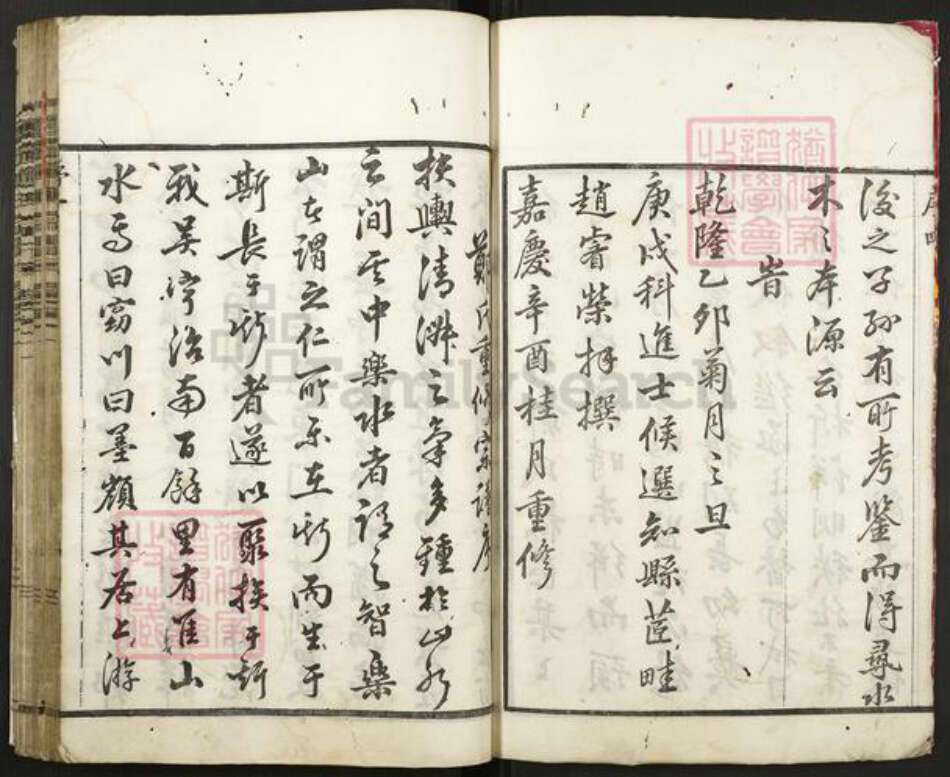 後之子孫有所考鑒而得尋水
木之本源云
時
乾隆乙卯菊月之旦
庚戌科進士候選知縣莛畦
趙睿榮拜撰
嘉慶辛酉桂月重修
鄭氏重修宗譜序
扶輿清淑之氣多鍾於山水
之間其中樂水者謂之智樂
山者謂之仁所樂在斯而生于
斯長于斯者遂以聚族于斯
我吳寧治南百餘里有崔山
水焉曰窈川曰墨嶺其居上游
FamilySearch